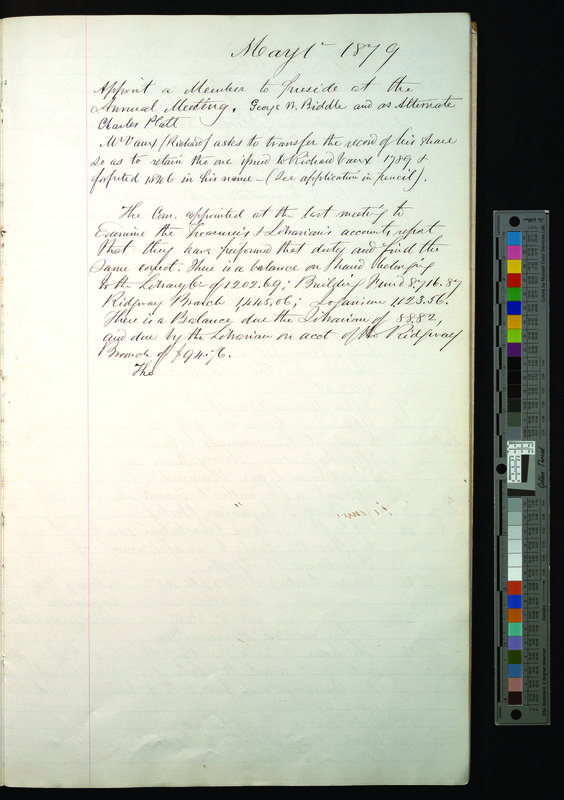 May 1st 1879
Appoint a Member to preside at the
Annual Meeting. George W. Biddle and as Alternate
Charles Platt
Mr Vaux (Richard) asks to transfer the record of his share
so as to retain the one issued to Richard Vaux 1789 &
forfeited 1846 in his name - (See application in pencil).
The Com. appointed at the last meeting to
Examine the Treasurer's & Librarian's accounts, report
that they have performed that duty and find the
same correct. There is a balance on hand belonging
to the Library &c of 1202.69; Building Fund 8716.87
Ridgway Branch 1445.06; Loganian 1123.56.
There is a Balance due the Librarian of 88.82,
and due by the Librarian on acct of the Ridgway
Branch of $94.76.
The